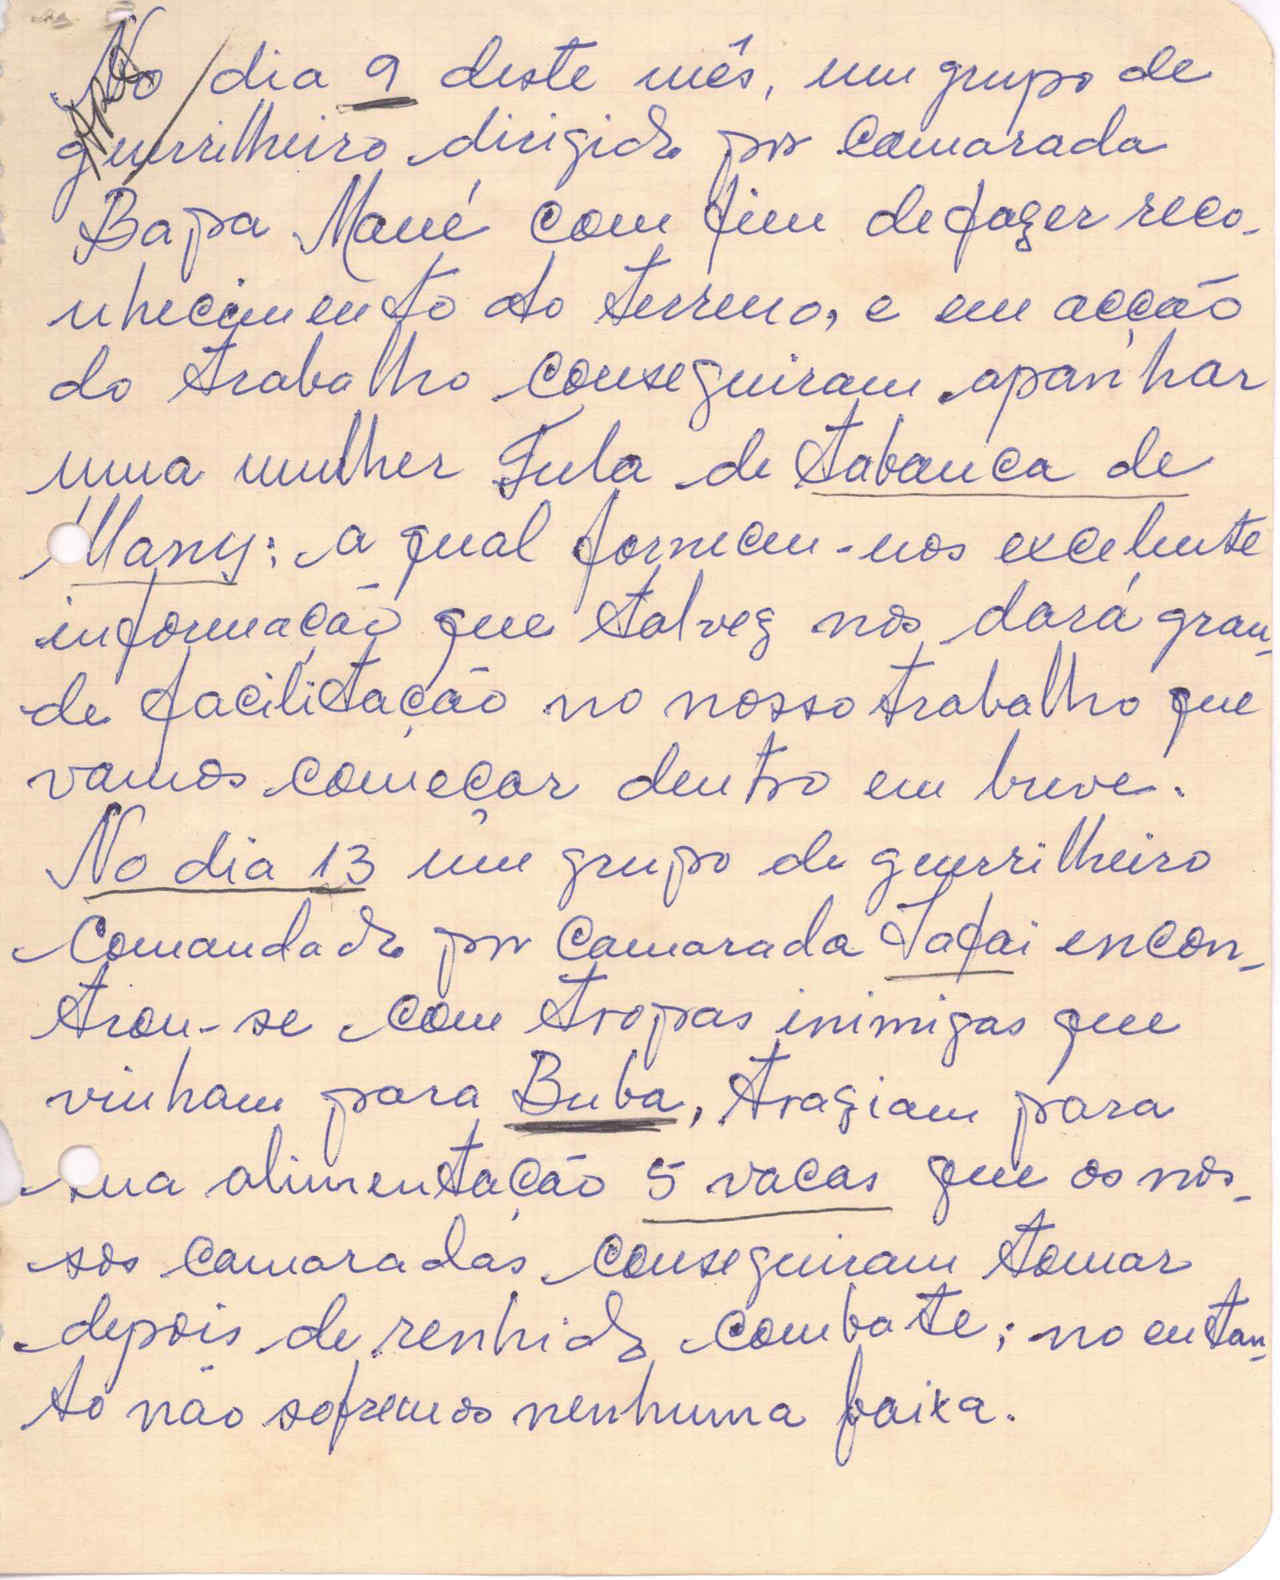 No dia 9 deste mês, um grupo de
guerrilheiro dirigido por camarada
Bapa Mané com fim de fazer reco-
nhecimento do terreno, e em acção
do trabalho conseguiram apanhar
uma mulher Fula de tabanca de
: a qual forneceu-nos excelente
informação que talvez nos dará gran-
de facilitação no nosso trabalho que
vamos começar dentro em breve.
No dia 13 um grupo de guerrilheiro
comandado por camarada Iafai encon-
trou-se com tropas inimigas que
vinham para Buba, tragiam para
sua alimentação 5 vacas que os nos-
sos camaradas conseguiram tomar
depois de renhido combate; no entan-
to não sofremos nenhuma baixa.